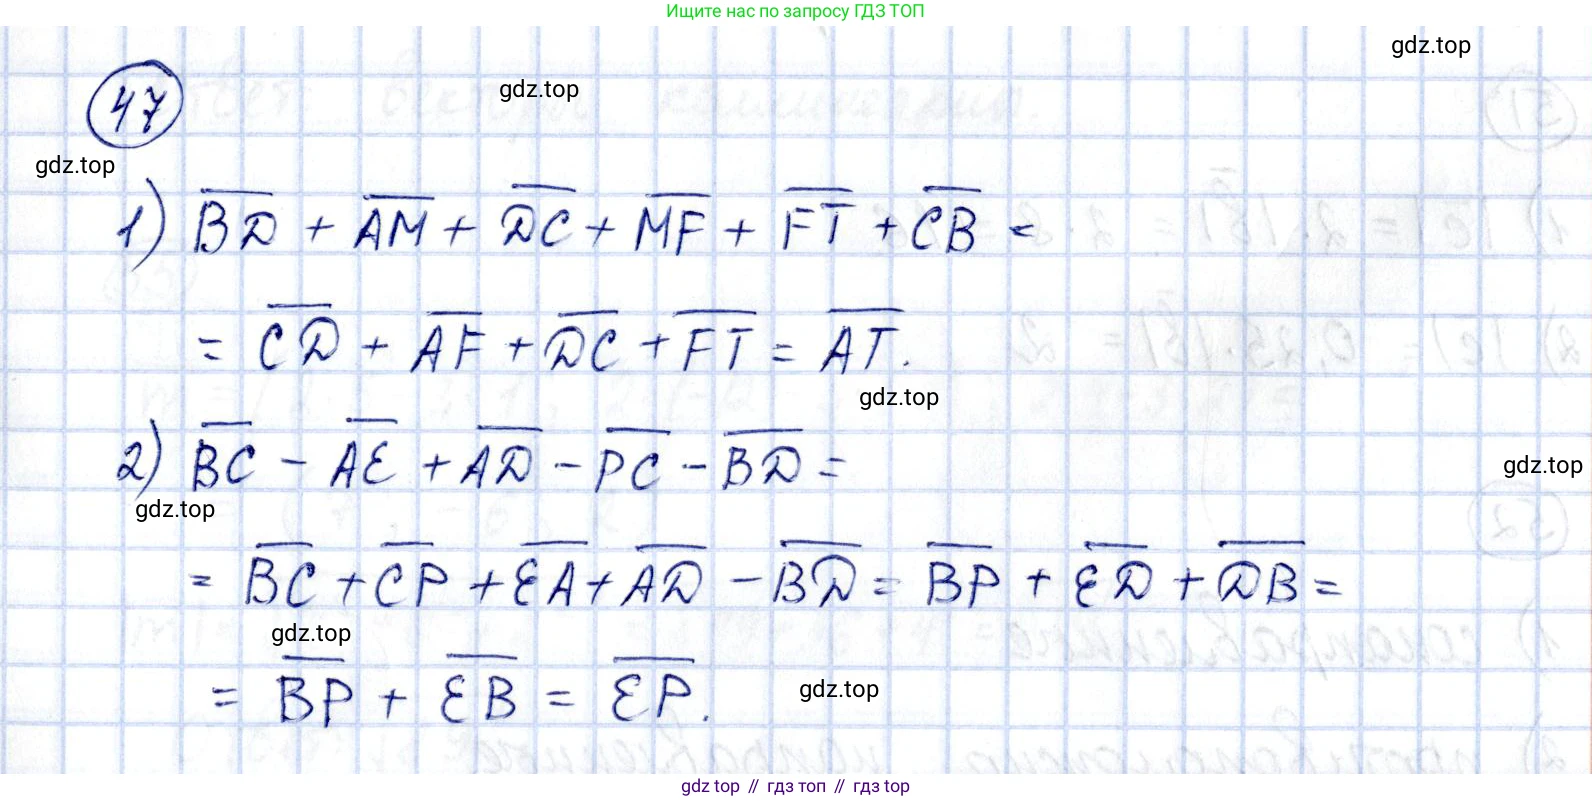 Ищите нас по запросу ГДЗ ТОП
gdz.top
gdz.top
47
gdz.top
1) BD + AM + DC + MF + FT + CB =
= CD + AF + DC + FT = AT.
gdz.top
2) BC - AE + AD - PC - BD =
gdz.top
gdz.top
= BC + CP + EA + AD - BD = BP + ED + DB =
gdz.top
= BP + EB = EP.
gdz.top
gdz top // гдз топ // гдз top